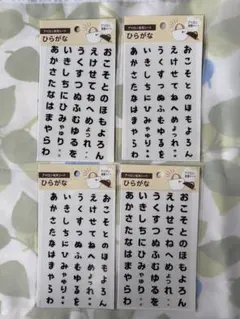 アイロン文字シート
ひらがな
あかさたなはまやらわ
いきしちにひみゃゅり
うくすつぬふむゆるを
えけせてねへめょっれ
おこそとのほもよろん
アイロン文字シート
ひらがな
あかさたなはまやらわ
いきしちにひみゃゅり
うくすつぬふむゆるを
えけせてねへめょっれ
おこそとのほもよろん
アイロン文字シート
ひらがな
あかさたなはまやらわ
いきしちにひみゃゅり
うくすつぬふむゆるを
えけせてねへめょっれ
おこそとのほもよろん
アイロン文字シート
ひらがな
あかさたなはまやらわ
いきしちにひみゃゅり
うくすつぬふむゆるを
えけせてねへめょっれ
おこそとのほもよろん